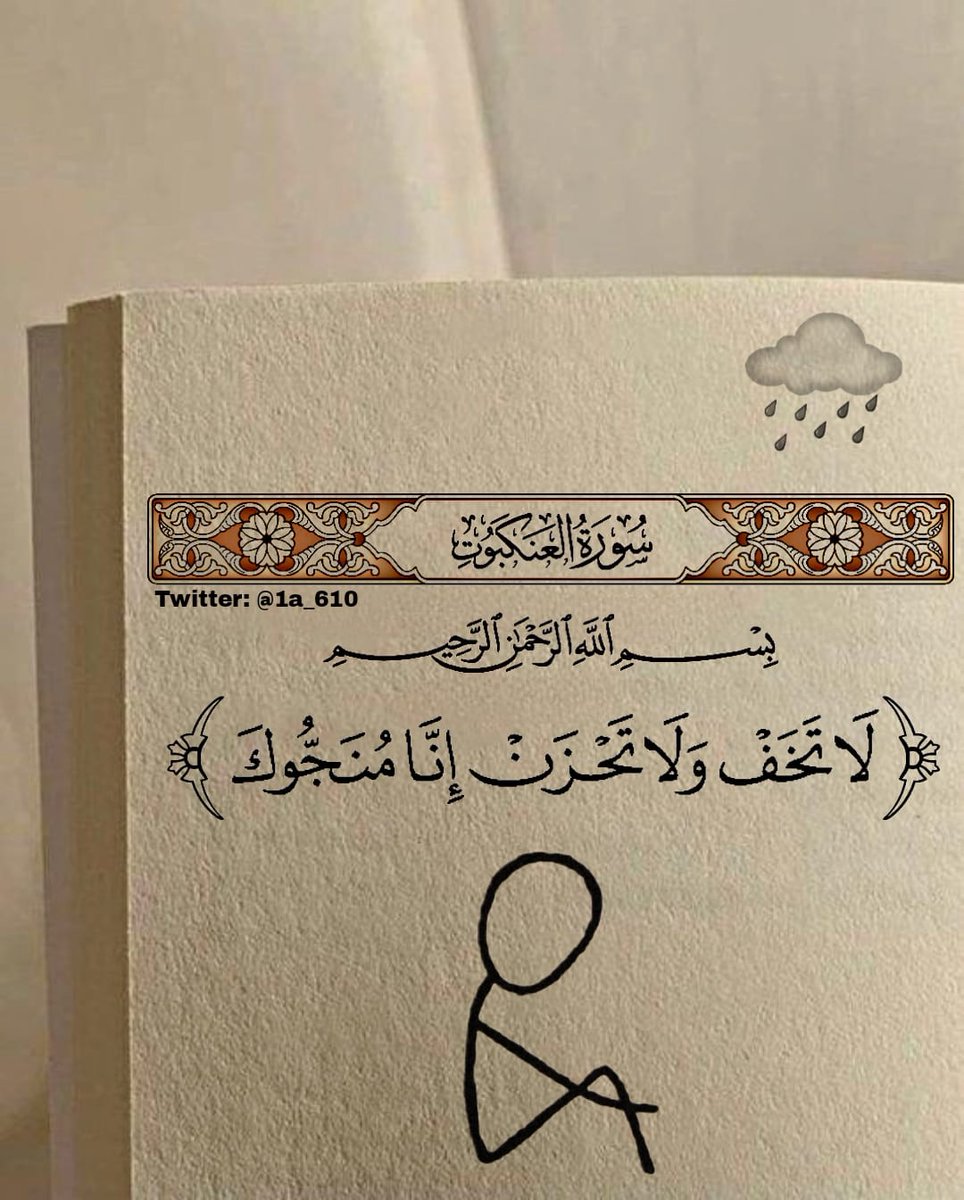 سُورَةُ العَنكَبُوتِ
Twitter: @1a_610
بِسْمِ ٱللَّهِ ٱلرَّحْمَٰنِ ٱلرَّحِيمِ
﴿لَا تَخَفْ وَلَا تَحْزَنْ إِنَّا مُنَجُّوكَ﴾